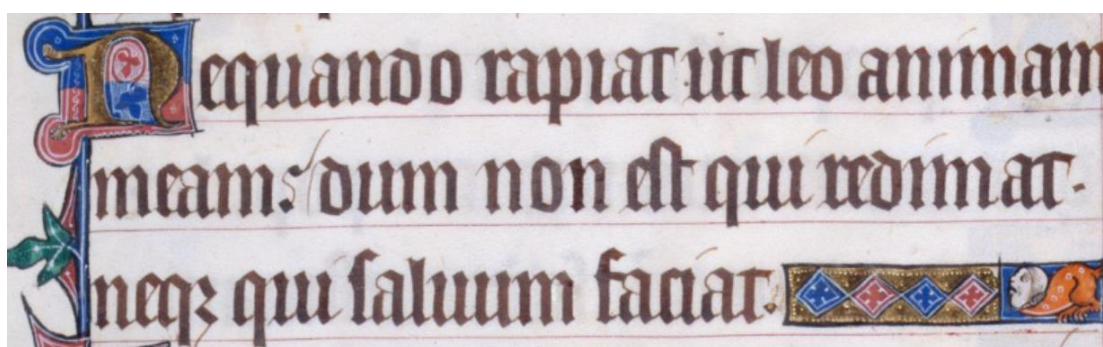 Nequando rapiat ut leo animam
meam: dum non est qui redimat.
neqꝫ qui saluum faciat.